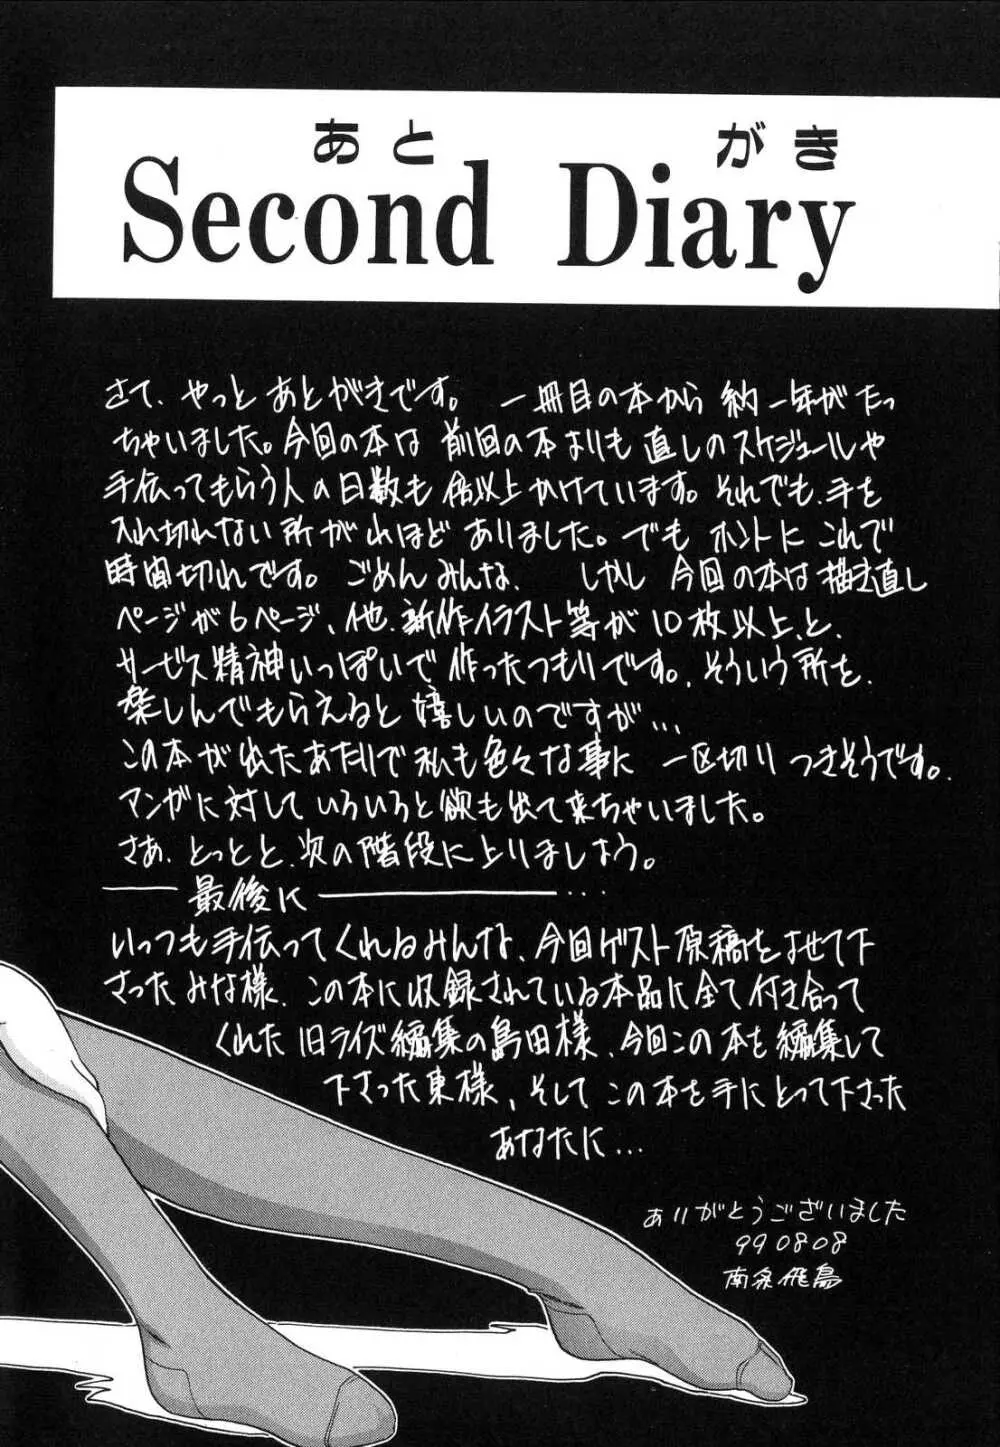 あとがき
Second Diary
さて、やっと あとがきです。 一冊目の本から 約一年がたっ
ちゃいました。今回の本は 前回の本よりも 直しのスケジュールや
手伝ってもらう人の日数も 倍以上かけています。それでも、手を
入れ切れない所が あれほど ありました。でも ホントに これで
時間切れです。 ごめんみんな、 しかし 今回の本は描き直し
ページが6ページ、他、新作イラスト等が 10枚以上、と、
サービス精神いっぱいで 作ったつもりです。そういう所を、
楽しんでもらえると 嬉しいのですが…
この本が出たあたりで私も色々な事に 一区切り つきそうです。
マンガに対して いろいろと欲も出て来ちゃいました。
さあ、とっとと、次の階段に上りましょう。
最後に …
いっつも手伝ってくれるみんな、今回ゲスト原稿をよせて下
さったみな様、この本に収録されている本品に全て付き合って
くれた 旧ライズ編集の島田様、今回この本を編集して
下さった東様、そして この本を手にとって下さった
あなたに…
ありがとうございました
990808
南条飛鳥